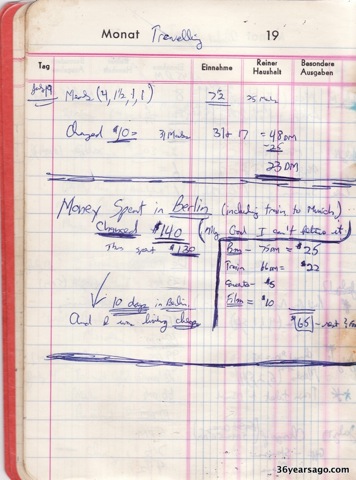 Monat Travelling 19
Tag Einnahme Reiner Haushalt Besondere Ausgaben
July 19 Marks (4, 1½, 1, 1) 7½
Changed $10 = 31 Marks 31 + 17 = 48 DM
- 25
23 DM
Money Spent in Berlin (including train to Munich)
Changed $140 (My God I can't believe it)
Thus spent $130
Room - 75 DM = $25
Train = $22
$5
10 days in Berlin
Film = $10
And I was living cheap
$65 - rest
36yearsago.com